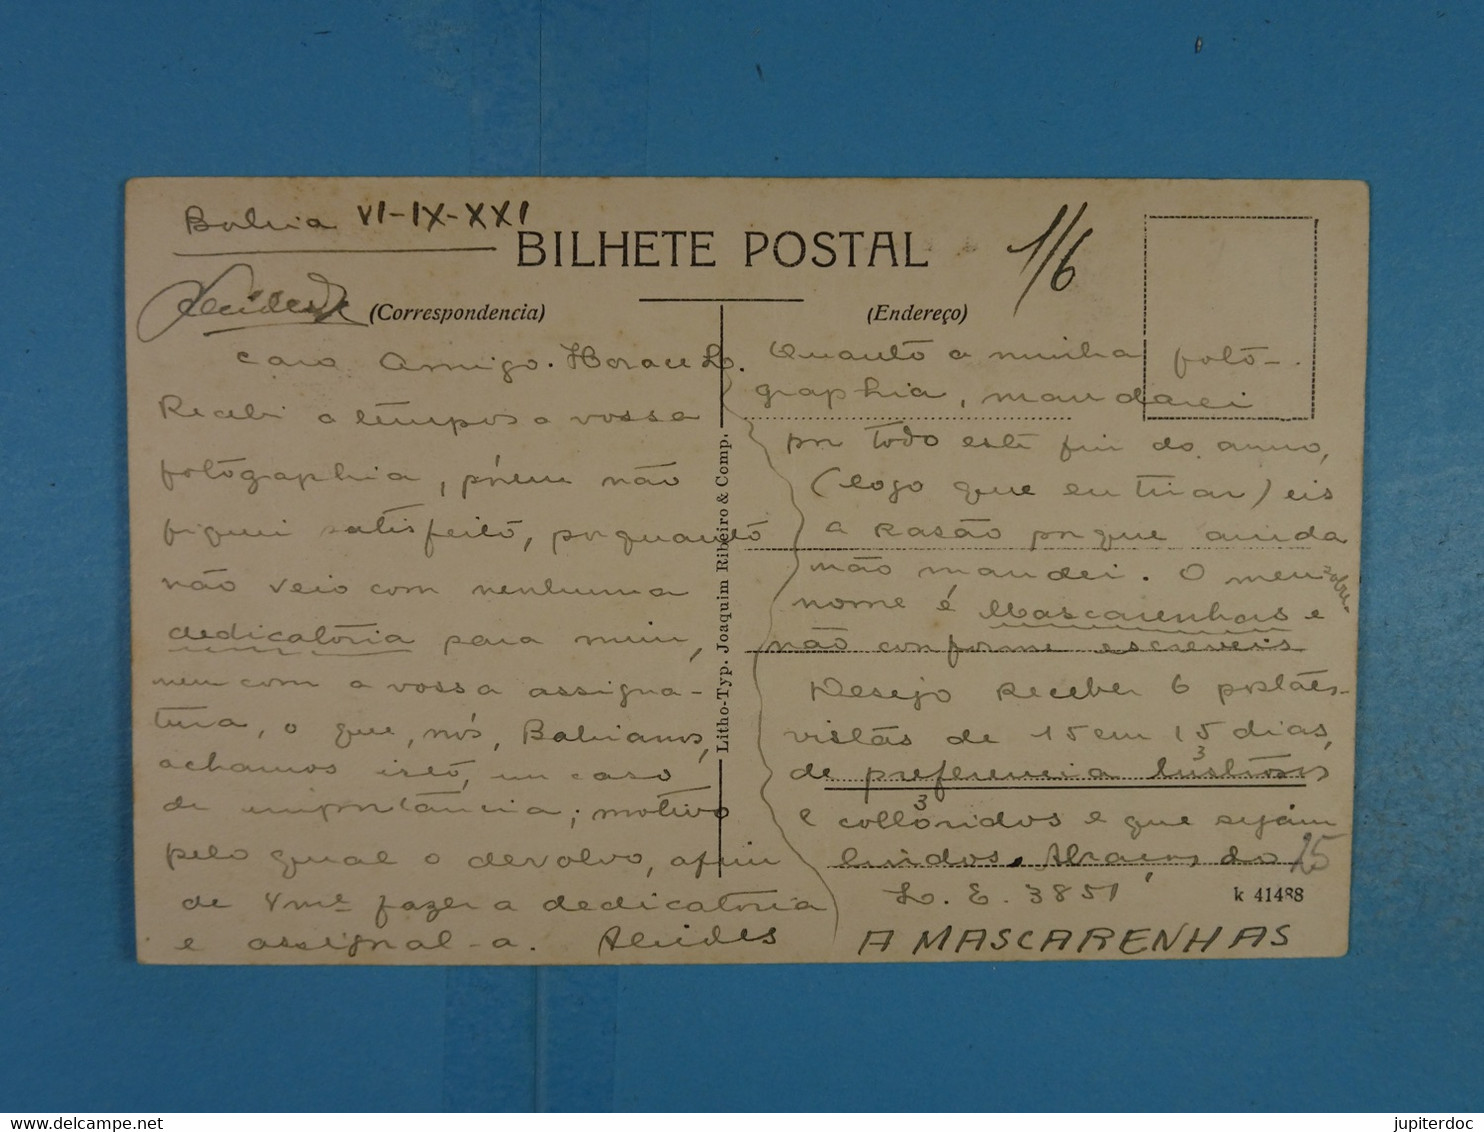 Bahia VI-IX-XXI
BILHETE POSTAL
1/6
Alcides
(Correspondencia)
(Endereço)
Caro Amigo. Horace L.
Recebi a tempos a vossa
fotographia, pórem não
fiquei satisfeito, porquanto
não veio com nenhuma
dedicatória para mim,
nem com a vossa assigna-
tura, o que, nós, Bahianos,
achamos isto, um caso
de importância; motivo
pelo qual o devolvo, afim
de Vmcê fazer a dedicatoria
e assignal-a. Alcides
Litho-Typ. Joaquim Ribeiro & Comp.
Quanto a minha foto-
graphia, mandarei
por todo este fim do anno,
(logo que eu tirar) eis
a rasão porque ainda
não mandei. O meu
nome é Mascarenhas e
não conforme escreveis
Desejo receber 6 postaes-
vistas de 15 em 15 dias,
de preferencia 3 lustrosos
e 3 colloridos e que sejam
lindos. Abraços do
25
L. E. 3851
k 41488
A MASCARENHAS
jupiterdoc